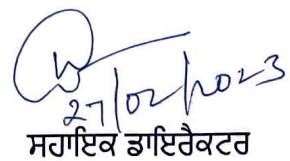 27/02/2023
ਸਹਾਇਕ ਡਾਇਰੈਕਟਰ